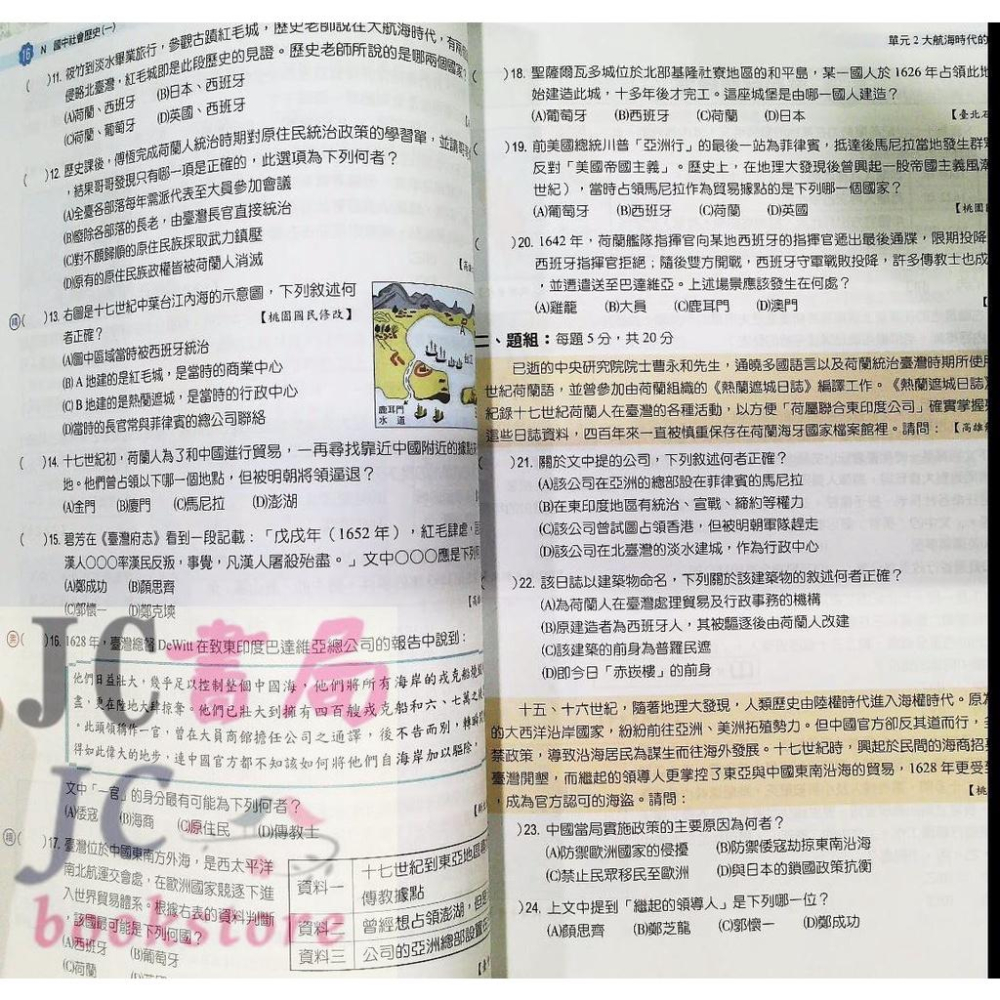 16 N 國中社會歷史(一)
( )11. 筱竹到淡水畢業旅行，參觀古蹟紅毛城，歷史老師說在大航海時代，有兩個
侵略北臺灣，紅毛城即是此段歷史的見證。歷史老師所說的是哪兩個國家？
(A)荷蘭、西班牙 (B)日本、西班牙
(C)荷蘭、葡萄牙 (D)英國、西班牙
( )12 歷史課後，傅恆完成荷蘭人統治時期對原住民統治政策的學習單，並請
，結果哥哥發現只有哪一項是正確的，此選項為下列何者？
(A)全臺各部落每年需派代表至大員參加會議
(B)廢除各部落的長老，由臺灣長官直接統治
(C)對不願歸順的原住民族採取武力鎮壓
(D)原有的原住民族政權皆被荷蘭人消滅
( )13. 右圖是十七世紀中葉台江內海的示意圖，下列敘述何
者正確？ 【桃園國民修改】
(A)圖中區域當時被西班牙統治
(B) A 地建的是紅毛城，是當時的商業中心
(C) B 地建的是熱蘭遮城，是當時的行政中心
(D)當時的長官常與菲律賓的總公司聯絡
鹿耳門
水道
( )14. 十七世紀初，荷蘭人為了和中國進行貿易，一再尋找靠近中國附近的據點
地。他們曾占領以下哪一個地點，但被明朝將領逼退？
(A)金門 (B)廈門 (C)馬尼拉 (D)澎湖
( )15. 碧芳在《臺灣府志》看到一段記載：「戊戌年（1652 年），紅毛肆虐，
漢人○○○率漢民反叛，事覺，凡漢人屠殺殆盡。」文中○○○應是下列何
(A)鄭成功 (B)顏思齊
(C)郭懷一 (D)鄭克塽
( )16. 1628 年，臺灣總督 DeWitt 在致東印度巴達維亞總公司的報告中說到：
他們日益壯大，幾乎足以控制整個中國海，他們將所有海岸的戎克船燒
盡，更在陸地大肆掠奪。他們已壯大到擁有四百艘戎克船和六、七萬之
。此頭領稱作一官，曾在大員商館擔任公司之通譯，後不告而別，
得如此偉大的地步，連中國官方都不知該如何將他們自海岸加以驅除。
文中「一官」的身分最有可能為下列何者？
(A)倭寇 (B)海商 (C)原住民 (D)傳教士
( )17. 臺灣位於中國東南方外海，是西太平洋
南北航運交會處，在歐洲國家競逐下進
入世界貿易體系。根據右表的資料判斷
，該國最可能是下列何國？
(A)西班牙 (B)葡萄牙
(C)荷蘭
資料一 十七世紀到東亞地區
傳教據點
資料二 曾經想占領澎湖，但
資料三 公司的亞洲總部設置
JC書局
JC
bookstore
單元 2 大航海時代的
)18. 聖薩爾瓦多城位於北部基隆社寮地區的和平島，某一國人於 1626 年占領此地
始建造此城，十多年後才完工。這座城堡是由哪一國人建造？
(A)葡萄牙 (B)西班牙 (C)荷蘭 (D)日本
)19. 前美國總統川普「亞洲行」的最後一站為菲律賓，抵達後馬尼拉當地發生群眾
反對「美國帝國主義」。歷史上，在地理大發現後曾興起一股帝國主義風潮
世紀），當時占領馬尼拉作為貿易據點的是下列哪一個國家？
(A)葡萄牙 (B)西班牙 (C)荷蘭 (D)英國
)20. 1642 年，荷蘭艦隊指揮官向某地西班牙的指揮官遞出最後通牒，限期投降
西班牙指揮官拒絕；隨後雙方開戰，西班牙守軍戰敗投降，許多傳教士也成
，並遭遣送至巴達維亞。上述場景應該發生在何處？
(A)雞籠 (B)大員 (C)鹿耳門 (D)澳門
二、題組：每題 5 分，共 20 分
已逝的中央研究院院士曹永和先生，通曉多國語言以及荷蘭統治臺灣時期所使用
世紀荷蘭語，並曾參加由荷蘭組織的《熱蘭遮城日誌》編譯工作。《熱蘭遮城日誌》
紀錄十七世紀荷蘭人在臺灣的各種活動，以方便「荷屬聯合東印度公司」確實掌握
這些日誌資料，四百年來一直被慎重保存在荷蘭海牙國家檔案館裡。請問：
)21. 關於文中提的公司，下列敘述何者正確？
(A)該公司在亞洲的總部設在菲律賓的馬尼拉
(B)在東印度地區有統治、宣戰、締約等權力
(C)該公司曾試圖占領香港，但被明朝軍隊趕走
(D)該公司在北臺灣的淡水建城，作為行政中心
)22. 該日誌以建築物命名，下列關於該建築物的敘述何者正確？
(A)為荷蘭人在臺灣處理貿易及行政事務的機構
(B)原建造者為西班牙人，其被驅逐後由荷蘭人改建
(C)該建築的前身為普羅民遮
(D)即今日「赤崁樓」的前身
十五、十六世紀，隨著地理大發現，人類歷史由陸權時代進入海權時代。原
的大西洋沿岸國家，紛紛前往亞洲、美洲拓殖勢力。但中國官方卻反其道而行，
禁政策，導致沿海居民為謀生而往海外發展。十七世紀時，興起於民間的海商招
臺灣開墾，而繼起的領導人更掌控了東亞與中國東南沿海的貿易，1628 年更受
，成為官方認可的海盜。請問：
)23. 中國當局實施政策的主要原因為何者？
(A)防禦歐洲國家的侵擾 (B)防禦倭寇劫掠東南沿海
(C)禁止民眾移民至歐洲 (D)與日本的鎖國政策抗衡
)24. 上文中提到「繼起的領導人」是下列哪一位？
(A)顏思齊 (B)鄭芝龍 (C)郭懷一 (D)鄭成功